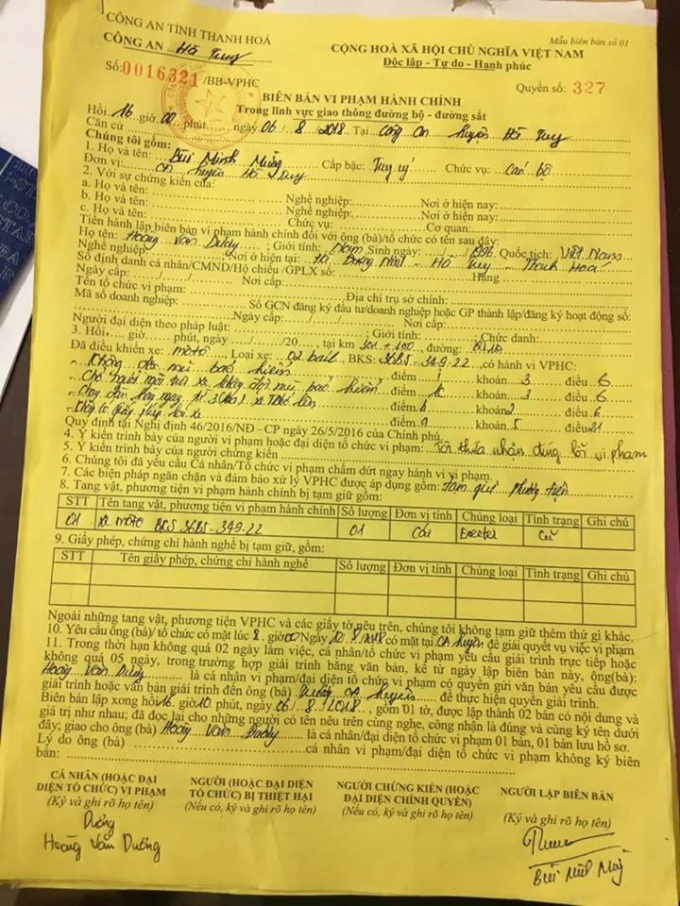 CÔNG AN TỈNH THANH HOÁ
Mẫu biên bản số 01
CÔNG AN Hà Trung
CỘNG HOÀ XÃ HỘI CHỦ NGHĨA VIỆT NAM
Độc lập - Tự do - Hạnh phúc
Số: 0016321 /BB-VPHC
Quyển số: 327
BIÊN BẢN VI PHẠM HÀNH CHÍNH
Trong lĩnh vực giao thông đường bộ - đường sắt
Hồi 16 giờ 00 phút, ngày 06/8/2018 Tại Công an huyện
Căn cứ
Chúng tôi gồm:
1. Họ và tên: Bùi Minh Cấp bậc: Chức vụ: Cán bộ
Đơn vị: CA huyện
2. Với sự chứng kiến của:
a. Họ và tên: Nghề nghiệp: Nơi ở hiện nay:
b. Họ và tên: Nghề nghiệp: Nơi ở hiện nay:
c. Họ và tên: Chức vụ: Cơ quan:
Tiến hành lập biên bản vi phạm hành chính đối với ông (bà)/tổ chức có tên sau đây:
Họ tên: Hoàng Văn Dương; Giới tính: Nam Sinh ngày: / /1996 Quốc tịch: Việt Nam
Nghề nghiệp: Nơi ở hiện tại: - Thanh Hoá
Số định danh cá nhân/CMND/Hộ chiếu/GPLX số: Hạng
Ngày cấp: / / Nơi cấp:
Tên tổ chức vi phạm: Địa chỉ trụ sở chính:
Mã số doanh nghiệp: Số GCN đăng ký đầu tư/doanh nghiệp hoặc GP thành lập/đăng ký hoạt động số:
Ngày cấp: / / Nơi cấp:
Người đại diện theo pháp luật: Giới tính: Chức danh:
3. Hồi giờ phút, ngày / /20 , tại km đường: QL1A
Đã điều khiển xe: môtô Loại xe: 02 bánh, BKS: 36B5-349.22, có hành vi VPHC:
- Không đội mũ bảo hiểm điểm i khoản 3 điều 6
- Chở người ngồi trên xe không đội mũ bảo hiểm điểm k khoản 3 điều 6
xe điểm khoản 2 điều 6
- Không có giấy phép lái xe điểm khoản 5 điều 21
Quy định tại Nghị định 46/2016/NĐ-CP ngày 26/5/2016 của Chính phủ
4. Ý kiến trình bày của người vi phạm hoặc đại diện tổ chức vi phạm: Tôi thừa nhận đúng lỗi vi phạm
5. Ý kiến trình bày của người chứng kiến
6. Chúng tôi đã yêu cầu Cá nhân/Tổ chức vi phạm chấm dứt ngay hành vi vi phạm.
7. Các biện pháp ngăn chặn và đảm bảo xử lý VPHC được áp dụng gồm: Tạm giữ phương tiện
8. Tang vật, phương tiện vi phạm hành chính bị tạm giữ gồm:
STT Tên tang vật, phương tiện vi phạm hành chính Số lượng Đơn vị tính Chủng loại Tình trạng Ghi chú
01 xe môtô BKS 36B5-349.22 01 Cái Exciter Cũ
9. Giấy phép, chứng chỉ hành nghề bị tạm giữ, gồm:
STT Tên giấy phép, chứng chỉ hành nghề Số lượng Đơn vị tính Chủng loại Tình trạng Ghi chú
Ngoài những tang vật, phương tiện VPHC và các giấy tờ nêu trên, chúng tôi không tạm giữ thêm thứ gì khác.
10. Yêu cầu ông (bà)/ tổ chức có mặt lúc 8 giờ 00 Ngày 10/8/2018 có mặt tại CA huyện để giải quyết vụ việc vi phạm
11. Trong thời hạn không quá 02 ngày làm việc, cá nhân/tổ chức vi phạm yêu cầu giải trình trực tiếp hoặc
không quá 05 ngày, trong trường hợp giải trình bằng văn bản, kể từ ngày lập biên bản này, ông(bà):
Hoàng Văn Dương là cá nhân vi phạm/đại diện tổ chức vi phạm có quyền gửi văn bản yêu cầu được
giải trình hoặc văn bản giải trình đến ông (bà) CA huyện để thực hiện quyền giải trình.
Biên bản lập xong hồi 16 giờ 10 phút, ngày 06/8/2018, gồm 01 tờ, được lập thành 02 bản có nội dung và
giá trị như nhau; đã đọc lại cho những người có tên nêu trên cùng nghe, công nhận là đúng và cùng ký tên dưới
đây; giao cho ông (bà) Hoàng Văn Dương là cá nhân/đại diện tổ chức vi phạm 01 bản, 01 bản lưu hồ sơ.
Lý do ông (bà) cá nhân vi phạm/đại diện tổ chức vi phạm không ký biên
bản:
CÁ NHÂN (HOẶC ĐẠI DIỆN TỔ CHỨC) VI PHẠM
(Ký và ghi rõ họ tên)
Dương
Hoàng Văn Dương
NGƯỜI (HOẶC ĐẠI DIỆN TỔ CHỨC) BỊ THIỆT HẠI
(Nếu có, ký và ghi rõ họ tên)
NGƯỜI CHỨNG KIẾN (HOẶC ĐẠI DIỆN CHÍNH QUYỀN)
(Nếu có, ký và ghi rõ họ tên)
NGƯỜI LẬP BIÊN BẢN
(Ký và ghi rõ họ tên)